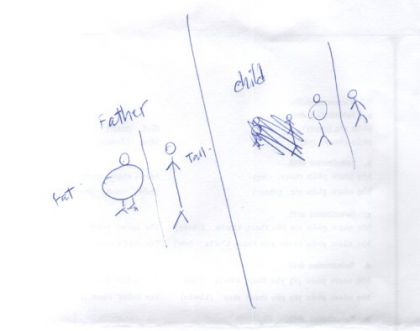 Father
Fat
Tall
child